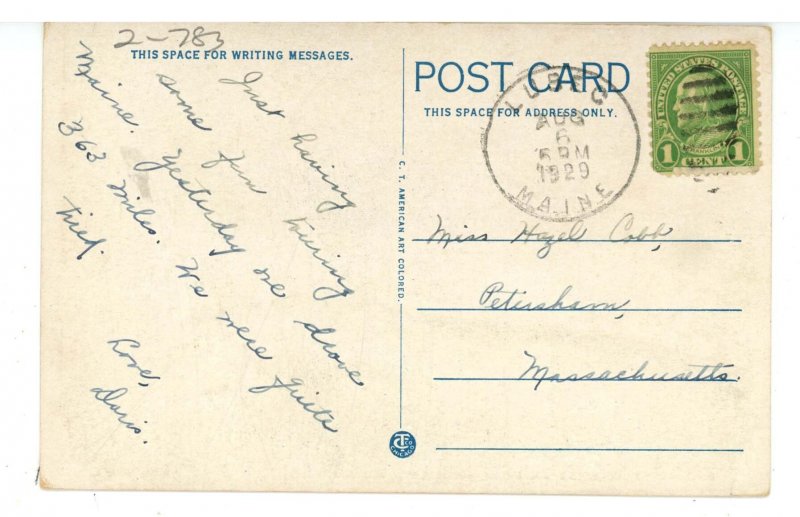 2-783
THIS SPACE FOR WRITING MESSAGES.
Just having
some fun turing
Maine. Yesterday we drove
363 miles. We were quite
tired.
Love,
Doris.
C. T. AMERICAN ART COLORED.
POST CARD
THIS SPACE FOR ADDRESS ONLY.
LUBEC
AUG
6
5 PM
1929
MAINE
UNITED STATES POSTAGE
FRANKLIN
1 CENT 1
Miss Hazel Cobb,
Petersham,
Massachusetts.